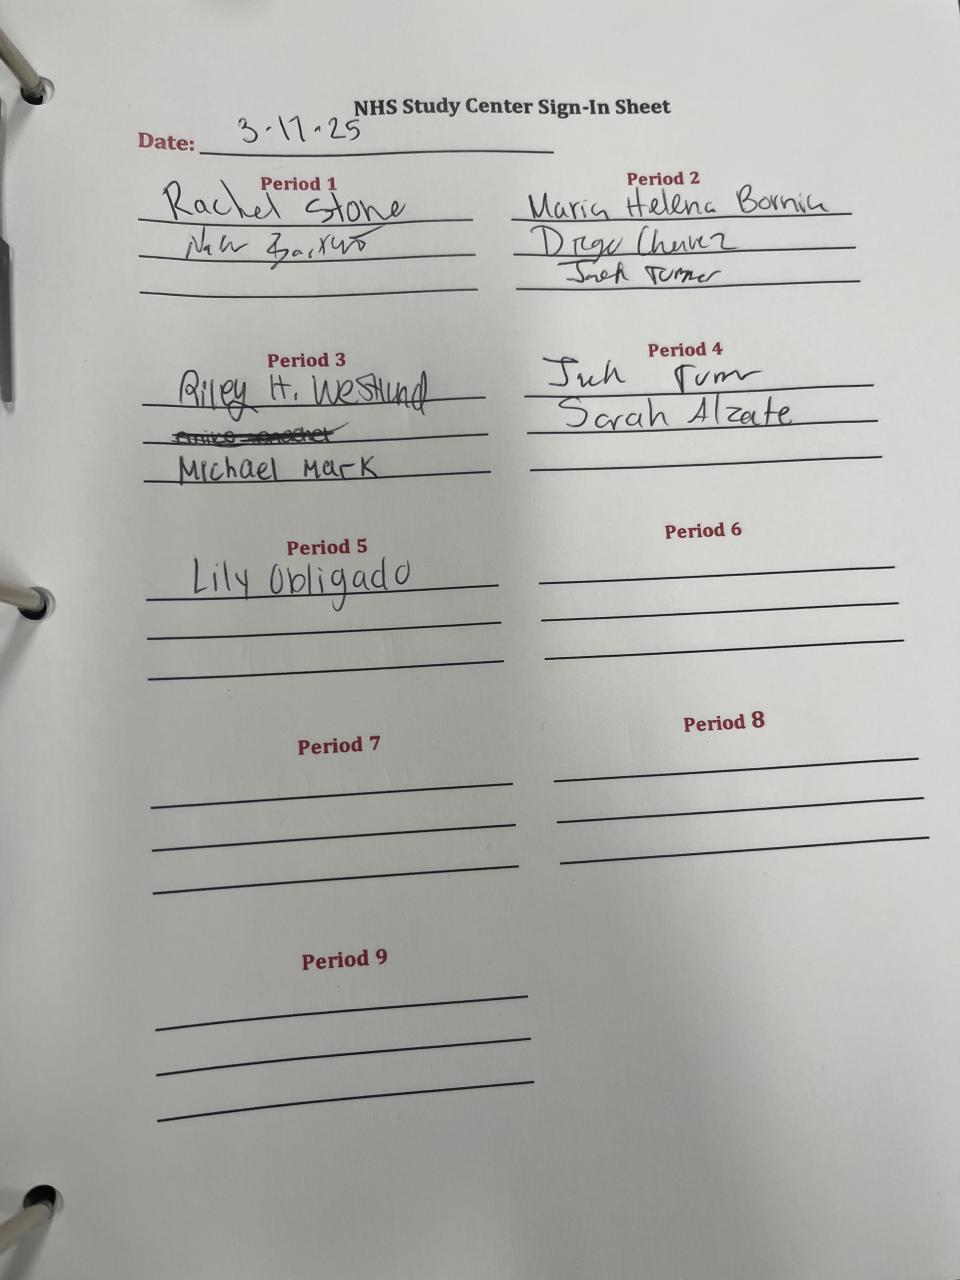 NHS Study Center Sign-In Sheet
Date: 3-17-25
Period 1
Rachel Stone
Period 2
Maria Helena Bornia
Diego Chavez
Jack Turner
Period 3
Riley H. Westlund
Michael Mark
Period 4
Jack Turner
Sarah Alzate
Period 5
Lily Obligado
Period 6
Period 7
Period 8
Period 9